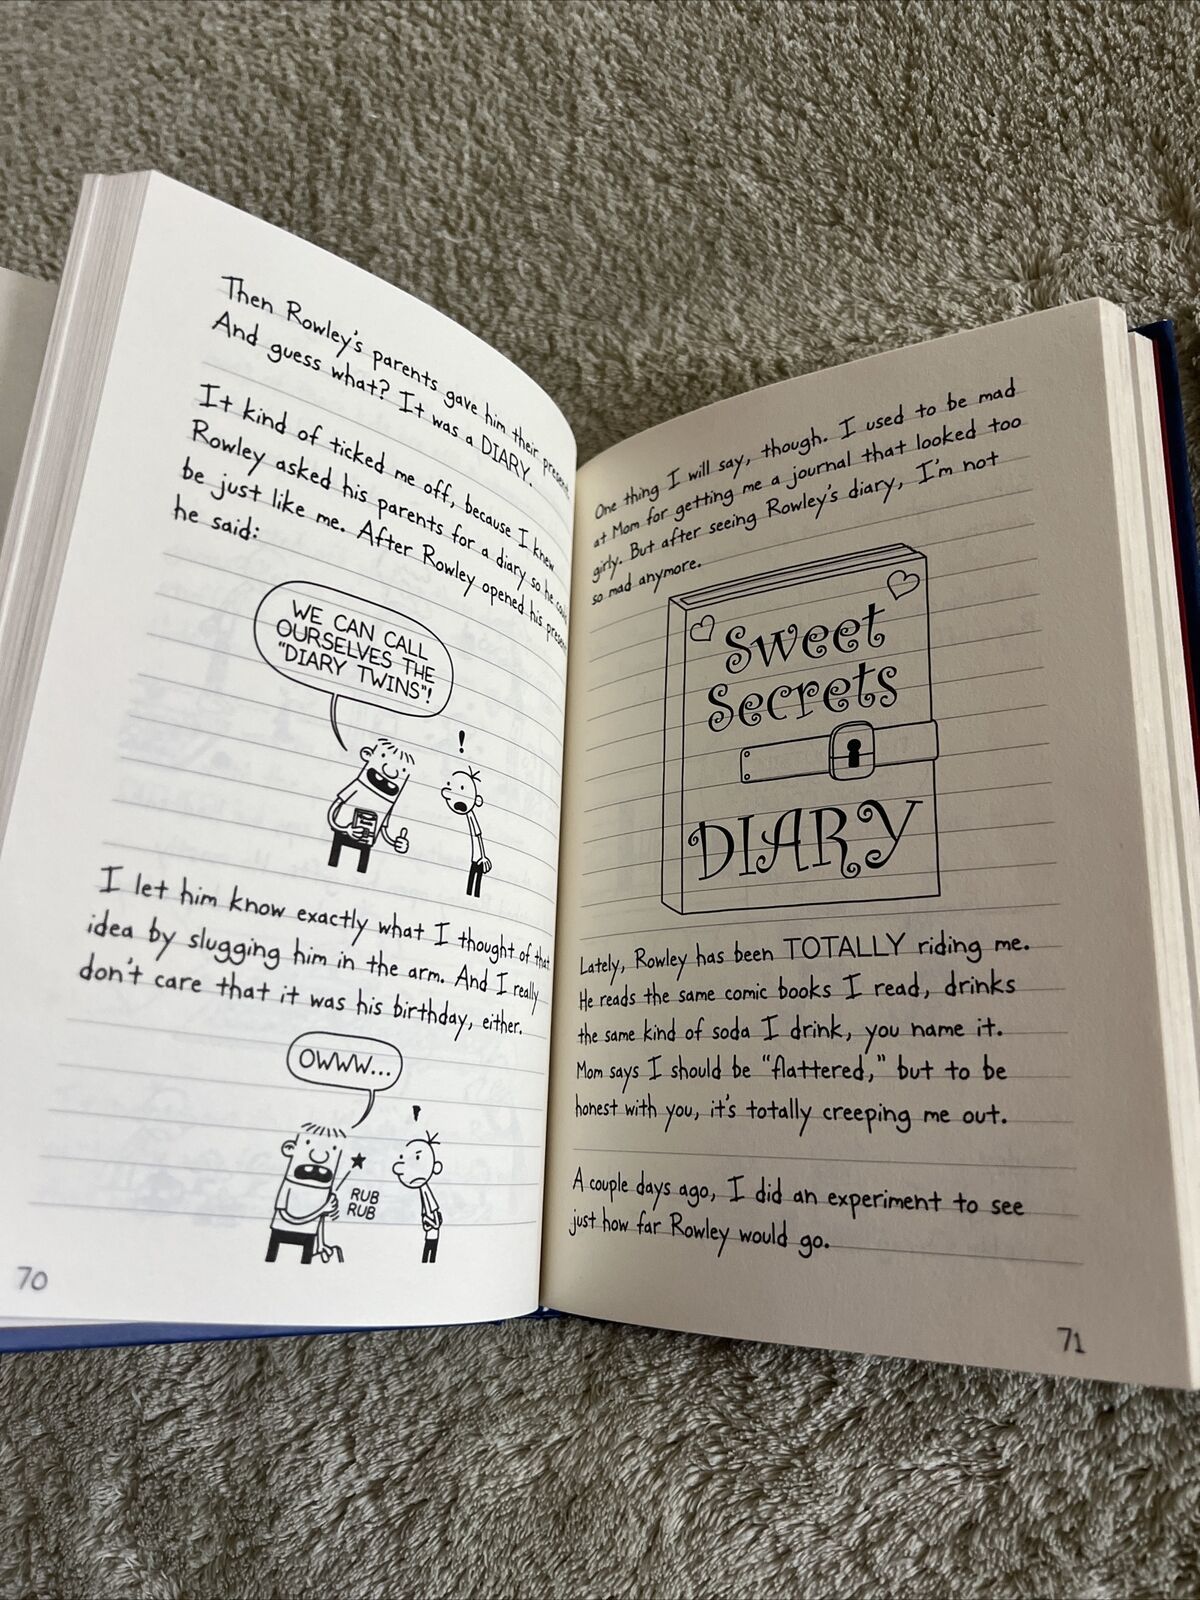 Then Rowley's parents gave him their present.
And guess what? It was a DIARY.
It kind of ticked me off, because I knew
Rowley asked his parents for a diary so he could
be just like me. After Rowley opened his present
he said:
WE CAN CALL
OURSELVES THE
"DIARY TWINS"!
!
I let him know exactly what I thought of that
idea by slugging him in the arm. And I really
don't care that it was his birthday, either.
OWWW...
RUB
RUB
70
One thing I will say, though. I used to be mad
at Mom for getting me a journal that looked too
girly. But after seeing Rowley's diary, I'm not
so mad anymore.
Sweet
Secrets
DIARY
Lately, Rowley has been TOTALLY riding me.
He reads the same comic books I read, drinks
the same kind of soda I drink, you name it.
Mom says I should be "flattered," but to be
honest with you, it's totally creeping me out.
A couple days ago, I did an experiment to see
just how far Rowley would go.
71